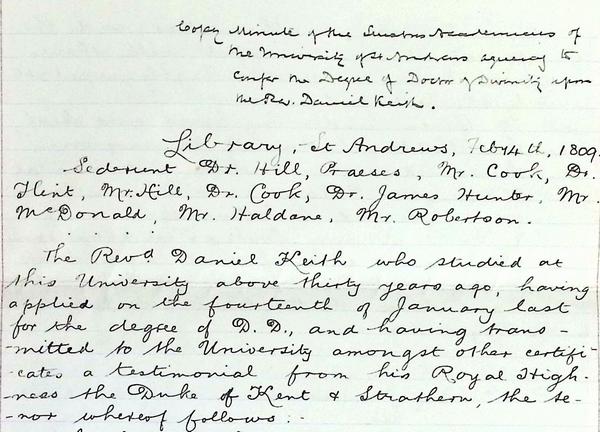 Copy Minute of the Senatus Academicus of
the University of St Andrews agreeing to
confer the Degree of Doctor of Divinity upon
the Rev. Daniel Keith.
Library, St Andrews, Feby 4th, 1809.
Sederunt Dr. Hill, Praeses, Mr. Cook, Dr.
Flint, Mr. Hill, Dr. Cook, Dr. James Hunter, Mr.
McDonald, Mr. Haldane, Mr. Robertson.
The Revd Daniel Keith who studied at
this University above thirty years ago, having
applied on the fourteenth of January last
for the degree of D.D., and having trans-
-mitted to the University amongst other certifi-
-cates a testimonial from his Royal High-
-ness the Duke of Kent & Strathern, the te-
-nor whereof follows: